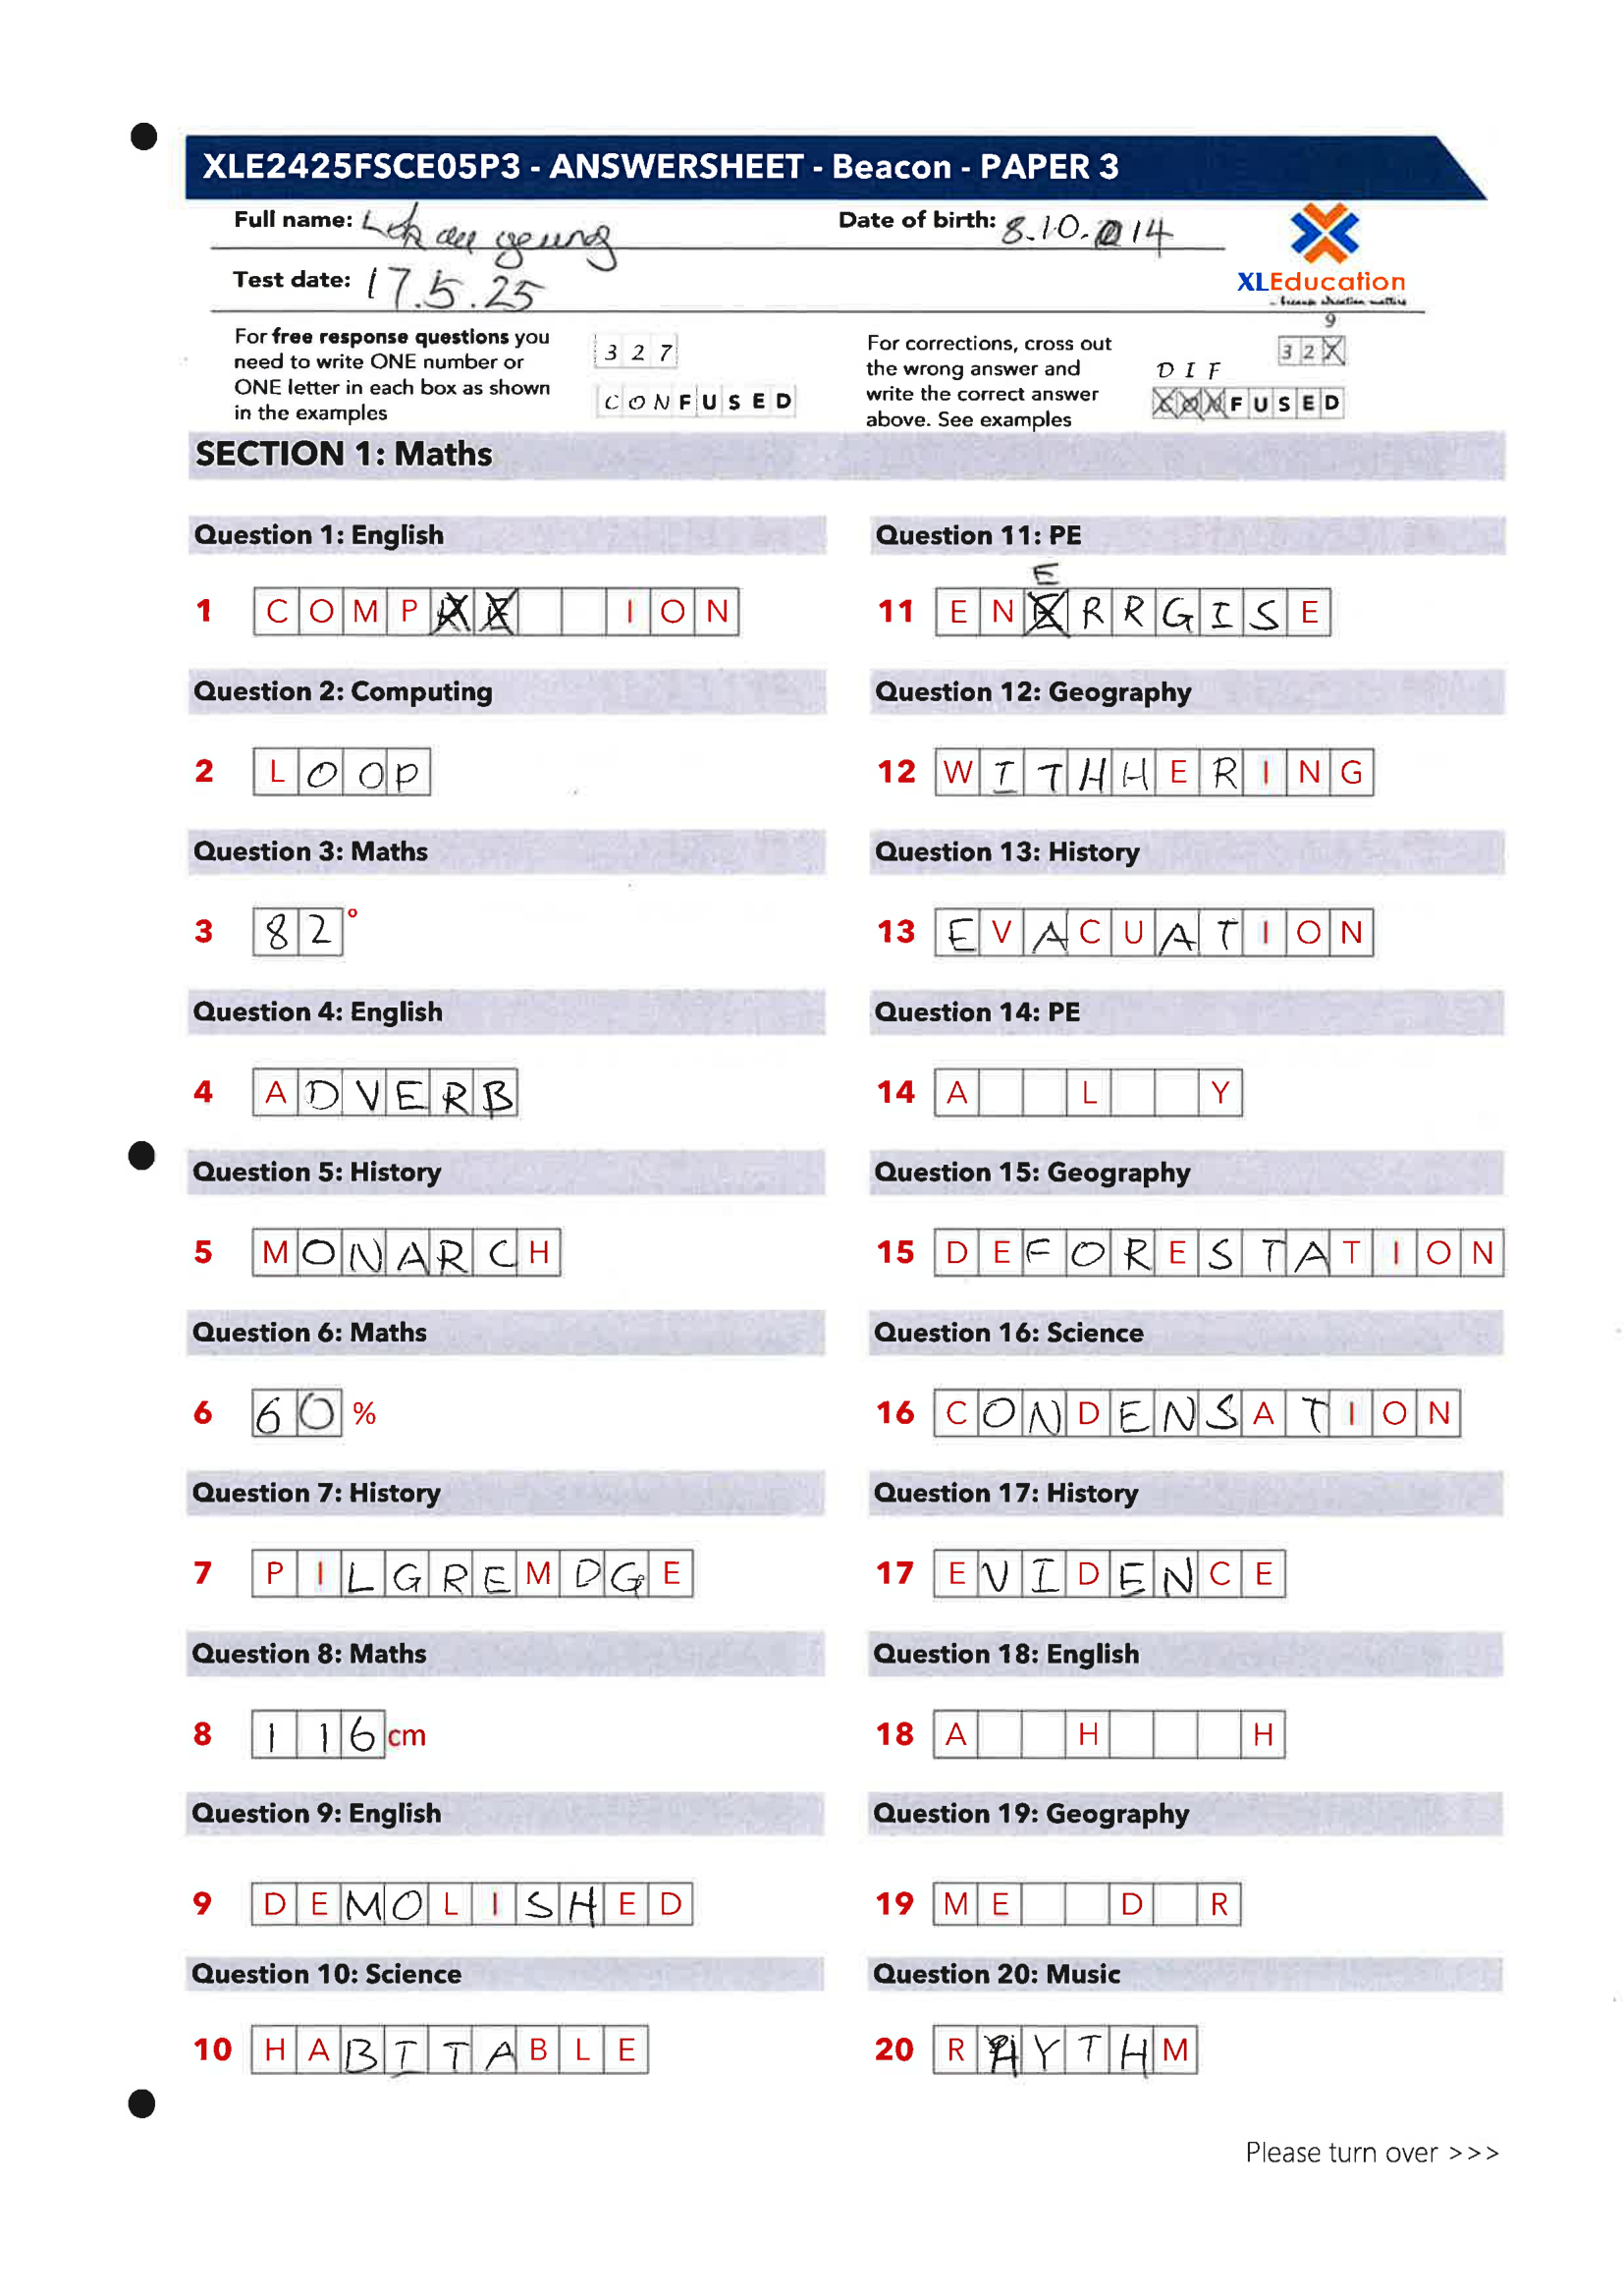 XLE2425FSCE05P3 - ANSWERSHEET - Beacon - PAPER 3
Full name:
Date of birth: 8.10.014
Test date: 17.5.25
XLEducation
... because education matters
For free response questions you
need to write ONE number or
ONE letter in each box as shown
in the examples
3 2 7
C O N F U S E D
For corrections, cross out
the wrong answer and
write the correct answer
above. See examples
9
3 2 X
D I F
F U S E D
SECTION 1: Maths
Question 1: English
1 C O M P I O N
Question 2: Computing
2 L O O P
Question 3: Maths
3 8 2 °
Question 4: English
4 A D V E R B
Question 5: History
5 M O N A R C H
Question 6: Maths
6 6 0 %
Question 7: History
7 P I L G R E M D G E
Question 8: Maths
8 1 1 6 cm
Question 9: English
9 D E M O L I S H E D
Question 10: Science
10 H A B I T A B L E
Question 11: PE
E
11 E N R R G I S E
Question 12: Geography
12 W I T H H E R I N G
Question 13: History
13 E V A C U A T I O N
Question 14: PE
14 A L Y
Question 15: Geography
15 D E F O R E S T A T I O N
Question 16: Science
16 C O N D E N S A T I O N
Question 17: History
17 E V I D E N C E
Question 18: English
18 A H H
Question 19: Geography
19 M E D R
Question 20: Music
20 R H Y T H M
Please turn over >>>